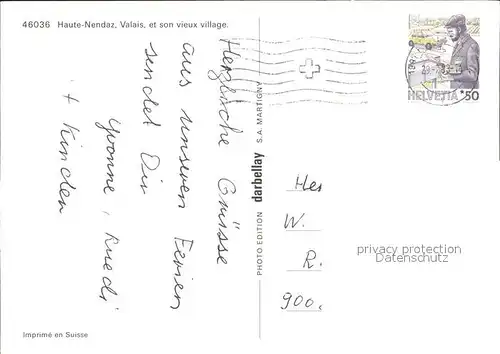 46036 Haute-Nendaz, Valais, et son vieux village.
Herzliche Grüsse
aus unseren Ferien
sendet Dir
Yvonne, Ruedi
+ Kinder
Imprimé en Suisse
PHOTO EDITION darbellay S.A. MARTIGNY
HELVETIA 50
Her
W.
R.
900.
privacy protection
Datenschutz